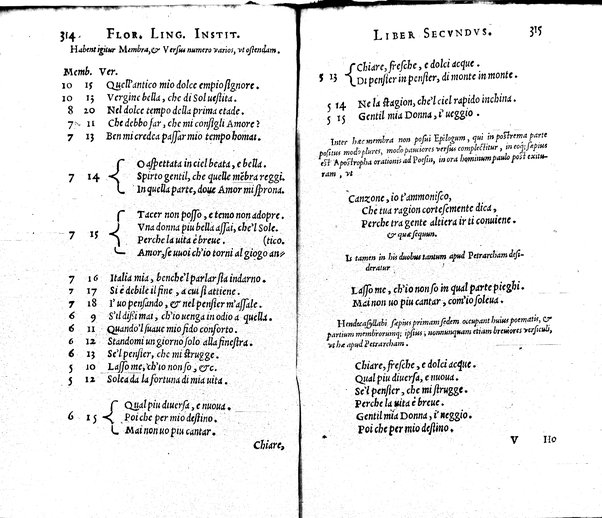 314 FLOR. LING. INSTIT.
Habent igitur Membra, & Versus numero varios, ut ostendam.
Memb. Ver.
10 15 Quell'antico mio dolce empio signore.
10 13 Vergine bella, che di Sol uestita.
8 20 Nel dolce tempo della prima etade.
7 11 Che debbo far, che mi consigli Amore?
7 13 Ben mi credea passar mio tempo homai.
7 14 { O aspettata in ciel beata, e bella.
Spirto gentil, che quelle mẽbra reggi.
In quella parte, doue Amor mi sprona.
7 15 { Tacer non posso, e temo non adopre.
Vna donna piu bella assai, che'l Sole.
Perche la uita è breue. (tico.
Amor, se uuoi ch'io torni al giogo an-
7 16 Italia mia, benche'l parlar sia indarno.
7 17 Si è debile il fine, a cui si attiene.
7 18 I' uo pensando, & nel pensier m'assale.
6 9 S'il dissi mai, ch'io uenga in odio a quella.
6 11 Quando'l suaue mio fido conforto.
6 12 Standomi un giorno solo alla finestra.
6 13 Se'l pensier, che mi strugge.
5 10 Lasso me, ch'io non so, &c.
5 12 Solea da la fortuna di mia uita.
6 15 { Qual piu diuersa, e nuoua.
Poi che per mio destino.
Mai non uo piu cantar.
Chiare,
LIBER SECVNDVS. 315
5 13 { Chiare, fresche, e dolci acque.
Di pensier in pensier, di monte in monte.
5 14 Ne la stagion, che'l ciel rapido inchina.
5 15 Gentil mia Donna, i' ueggio.
Inter hæc membra non posui Epilogum, qui in postrema parte
positus modo plures, modo pauciores versus complectitur, in eoq; sæpius
est Apostropha orationis ad Poesin, in ora hominum paulo post exitu-
ram, vt
Canzone, io t'ammonisco,
Che tua ragion cortesemente dica,
Perche tra gente altiera ir ti conuiene.
& quæ sequun.
Is tamen in his duobus tantum apud Petrarcham desi-
deratur
Lasso me, ch'io non so in qual parte pieghi.
Mai non uo piu cantar, com'io soleua.
Hendecasyllabi sæpius primam sedem occupant huius poematis, &
partium membrorumq; ipsius, nonnunquam etiam breuiores versiculi,
vt hæ apud Petrarcham.
Chiare, fresche, e dolci acque.
Qual piu diuersa, e nuoua.
Se'l pensier, che mi strugge.
Perche la uita è breue.
Gentil mia Donna, i' ueggio.
Poi che per mio destino.
V Ho